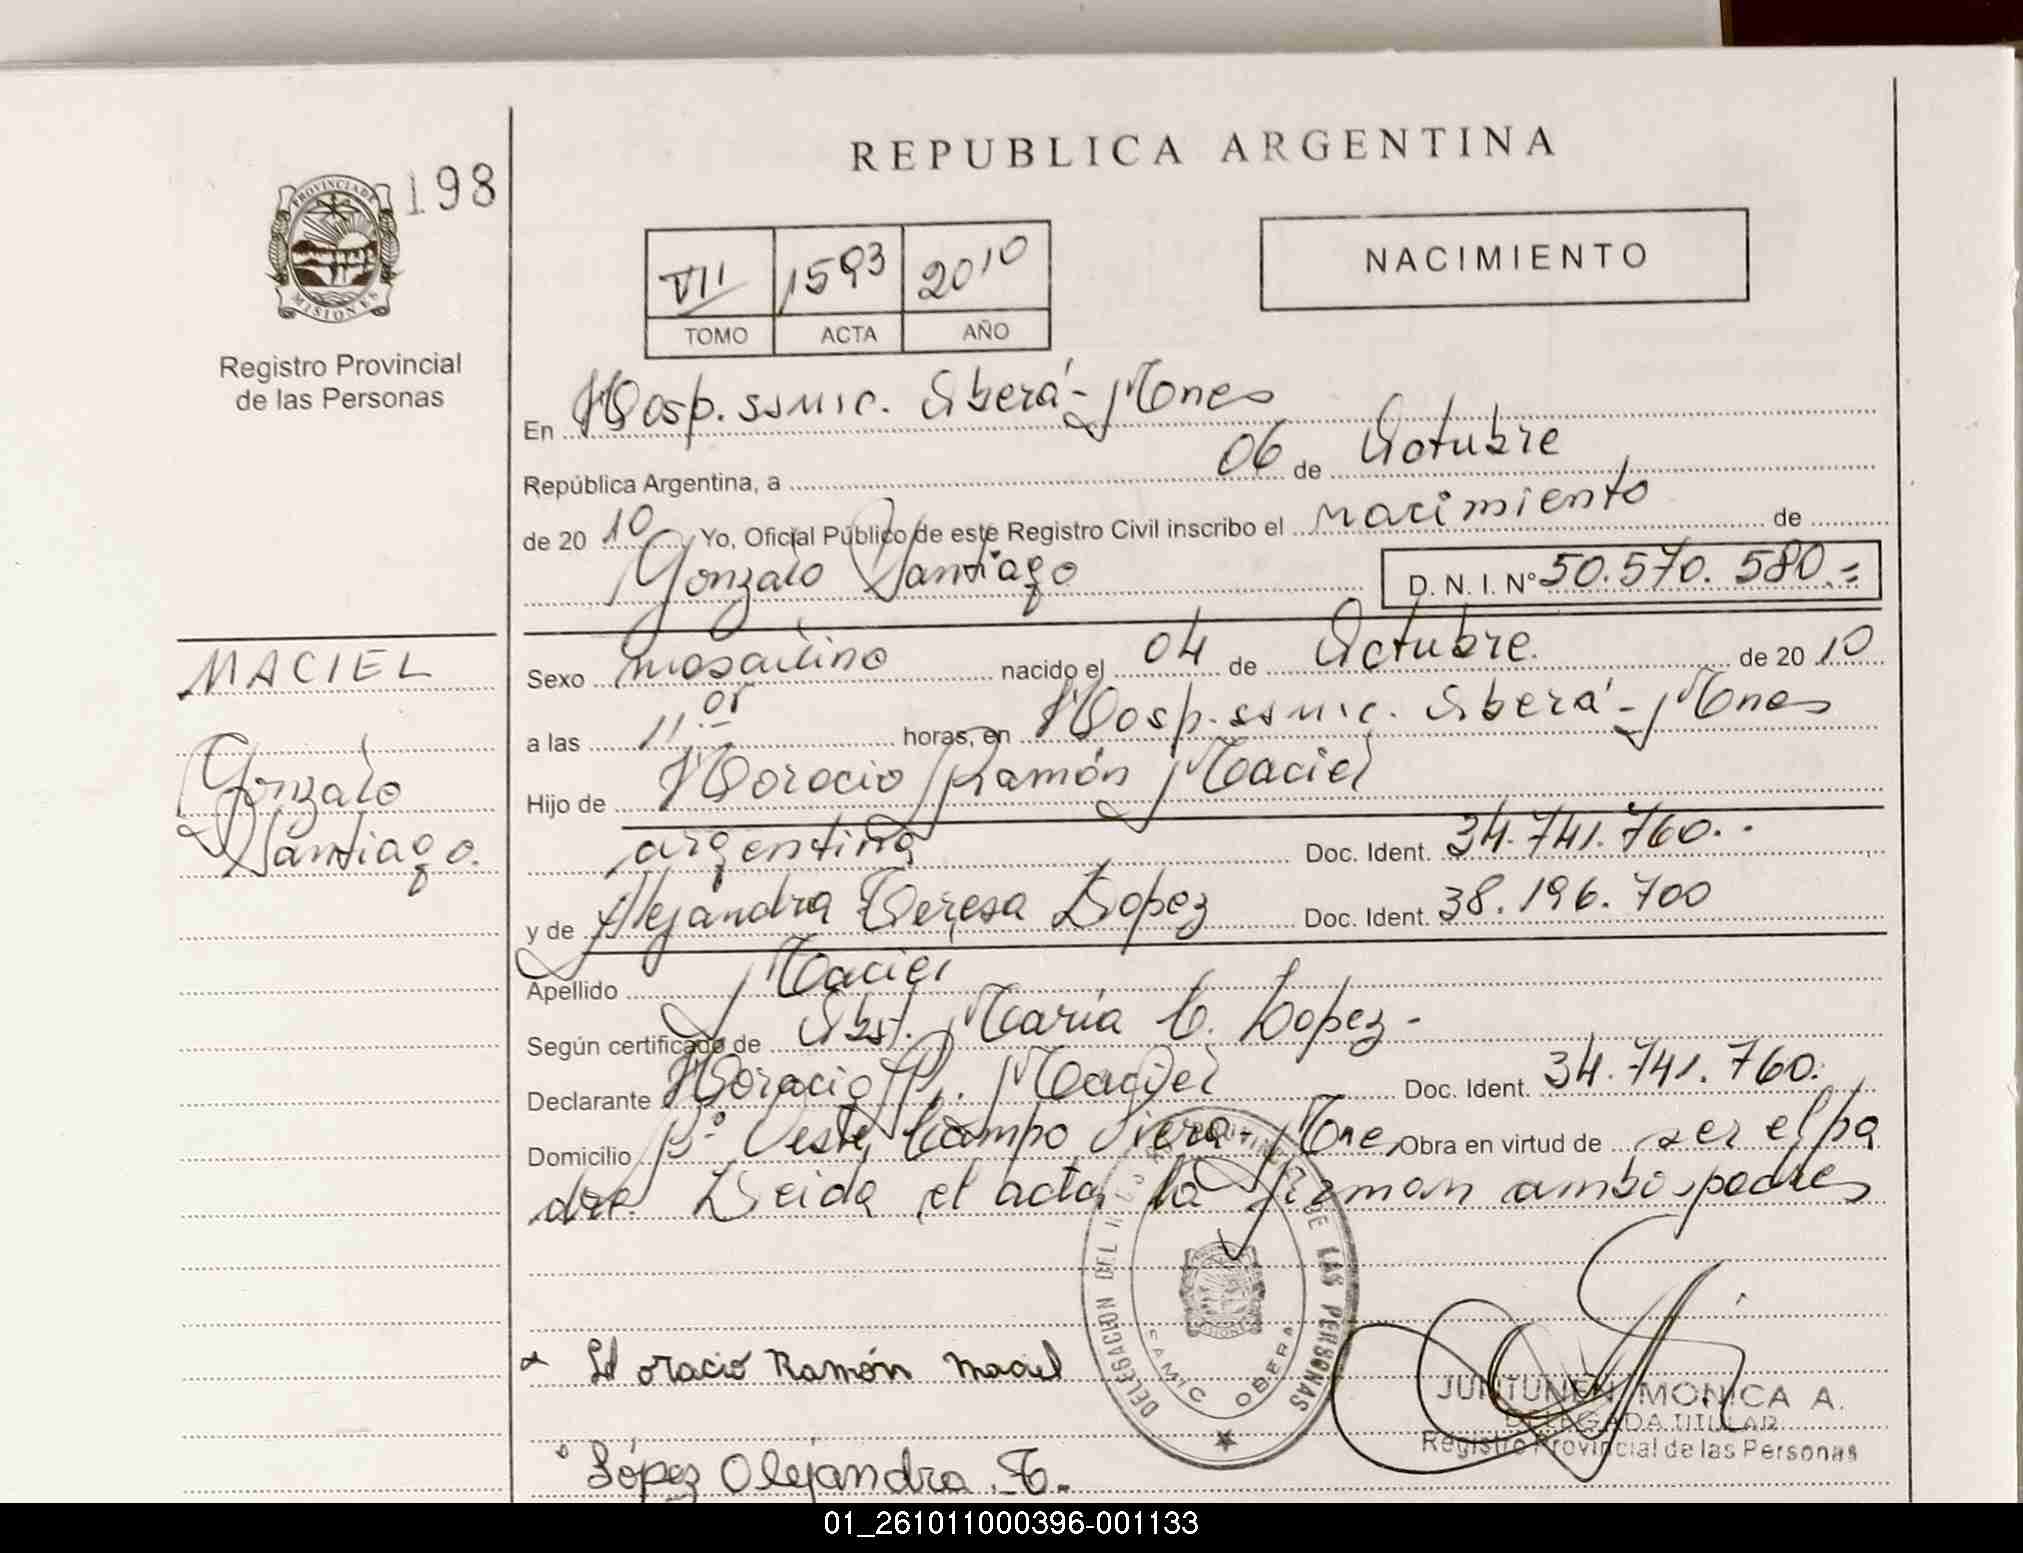 REPUBLICA ARGENTINA
198
PROVINCIA DE MISIONES
Registro Provincial
de las Personas
VII 1593 2010
TOMO ACTA AÑO
NACIMIENTO
En Hosp. SSMIC. Oberá - Mnes
República Argentina, a 06 de Octubre
de 20 10 Yo, Oficial Público de este Registro Civil inscribo el nacimiento de
Gonzalo Santiago D. N. I. Nº 50.570.580.=
MACIEL
Gonzalo
Santiago.
Sexo masculino nacido el 04 de Octubre. de 20 10
a las 11 05 horas, en Hosp. SSMIC. Oberá - Mnes
Hijo de Horacio Ramón Maciel
argentino Doc. Ident. 34.741.760..
y de Alejandra Teresa Lopez Doc. Ident. 38.196.700
Apellido Maciel
Según certificado de Obst. María C. Lopez -
Declarante Horacio R. Maciel Doc. Ident. 34.741.760.
Domicilio Bº Oeste, Campo Viera - Mne, Obra en virtud de ser el pa
dre. Leida el acta, la firman ambos padres
DELEGACION DEL REGISTRO PROVINCIAL DE LAS PERSONAS
SAMIC OBERA
Horacio Ramón Maciel
López Alejandra T.
JUNTUNEN MONICA A.
DELEGADA TITULAR
Registro Provincial de las Personas
01_261011000396-001133